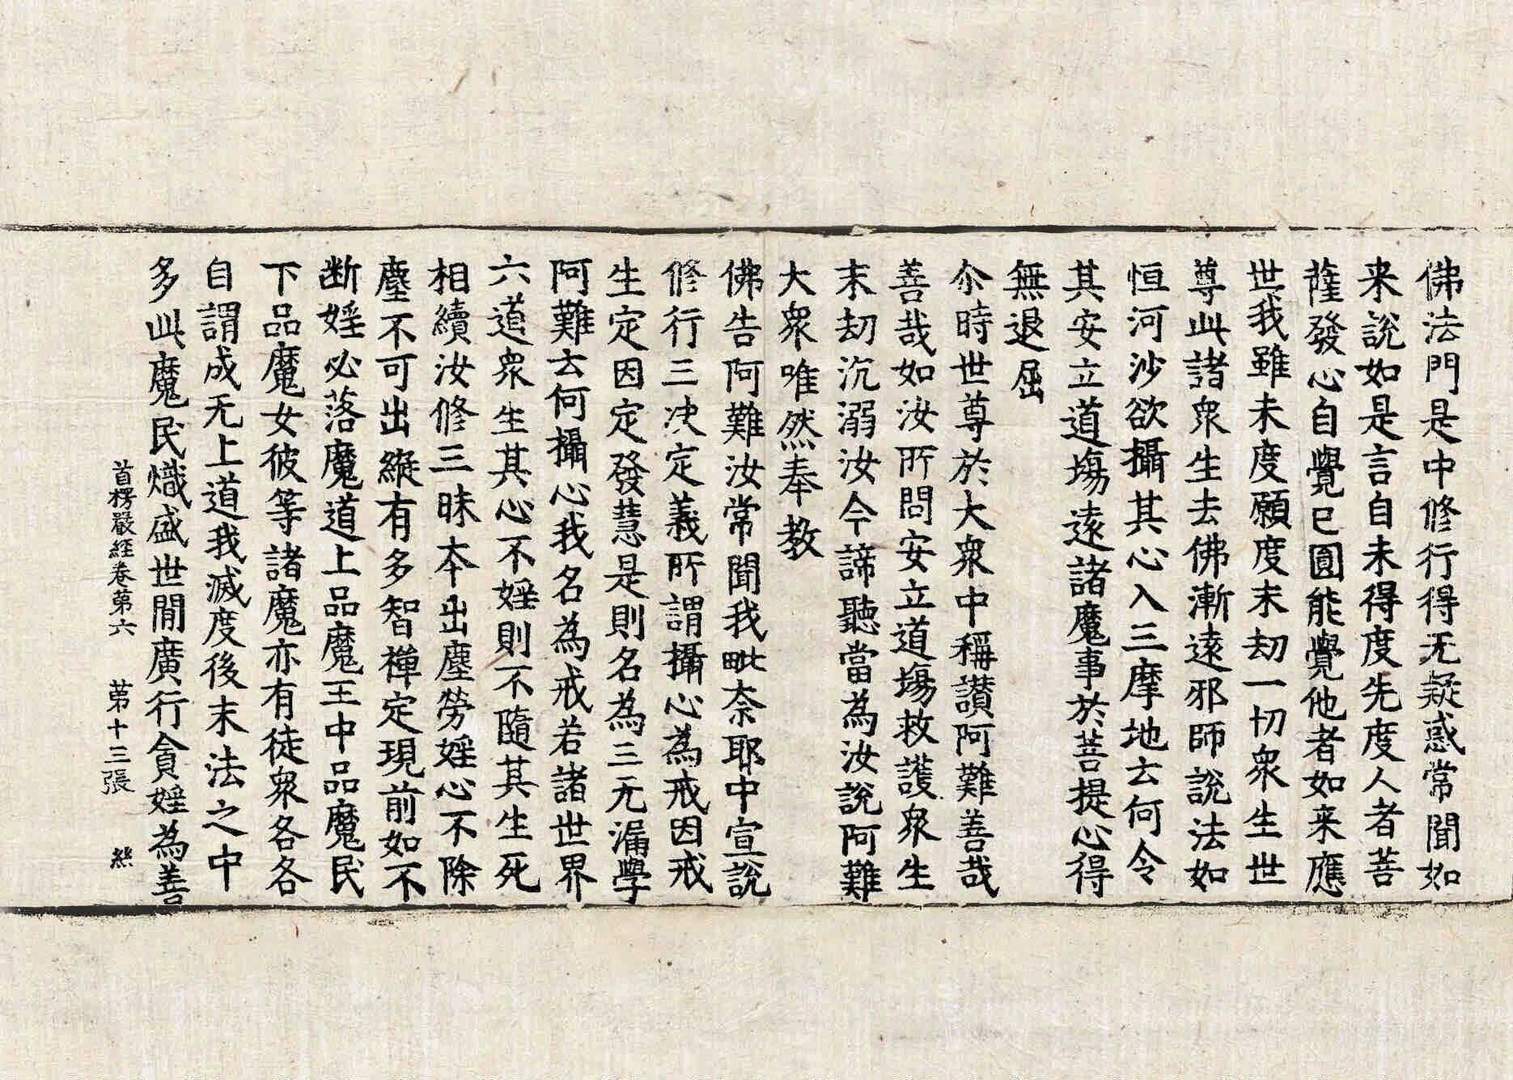 佛法門是中修行得无疑惑常聞如
来說如是言自未得度先度人者菩
薩發心自覺已圓能覺他者如来應
世我雖未度願度末劫一切衆生世
尊此諸衆生去佛漸遠邪師說法如
恒河沙欲攝其心入三摩地云何令
其安立道場遠諸魔事於菩提心得
無退屈
尒時世尊於大衆中稱讃阿難善哉
善哉如汝所問安立道場救護衆生
末劫沉溺汝今諦聽當為汝說阿難
大衆唯然奉教
佛告阿難汝常聞我毗奈耶中宣說
修行三决定義所謂攝心為戒因戒
生定因定發慧是則名為三无漏學
阿難云何攝心我名為戒若諸世界
六道衆生其心不婬則不隨其生死
相續汝修三昧本出塵勞婬心不除
塵不可出縱有多智禪定現前如不
断婬必落魔道上品魔王中品魔民
下品魔女彼等諸魔亦有徒衆各各
自謂成无上道我滅度後末法之中
多此魔民熾盛世間廣行貪婬為善
首楞嚴經卷第六 第十三張